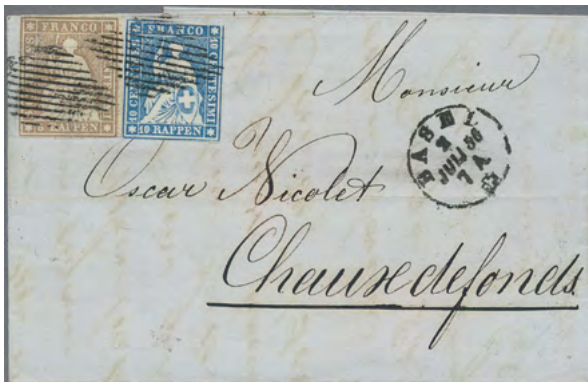 FRANCO
RAPPEN
FRANCO
10 CENTESIMI
10 RAPPEN
Monsieur
BASEL
2
JULI 56
7 A
Oscar Nicolet
Chauxdefonds.